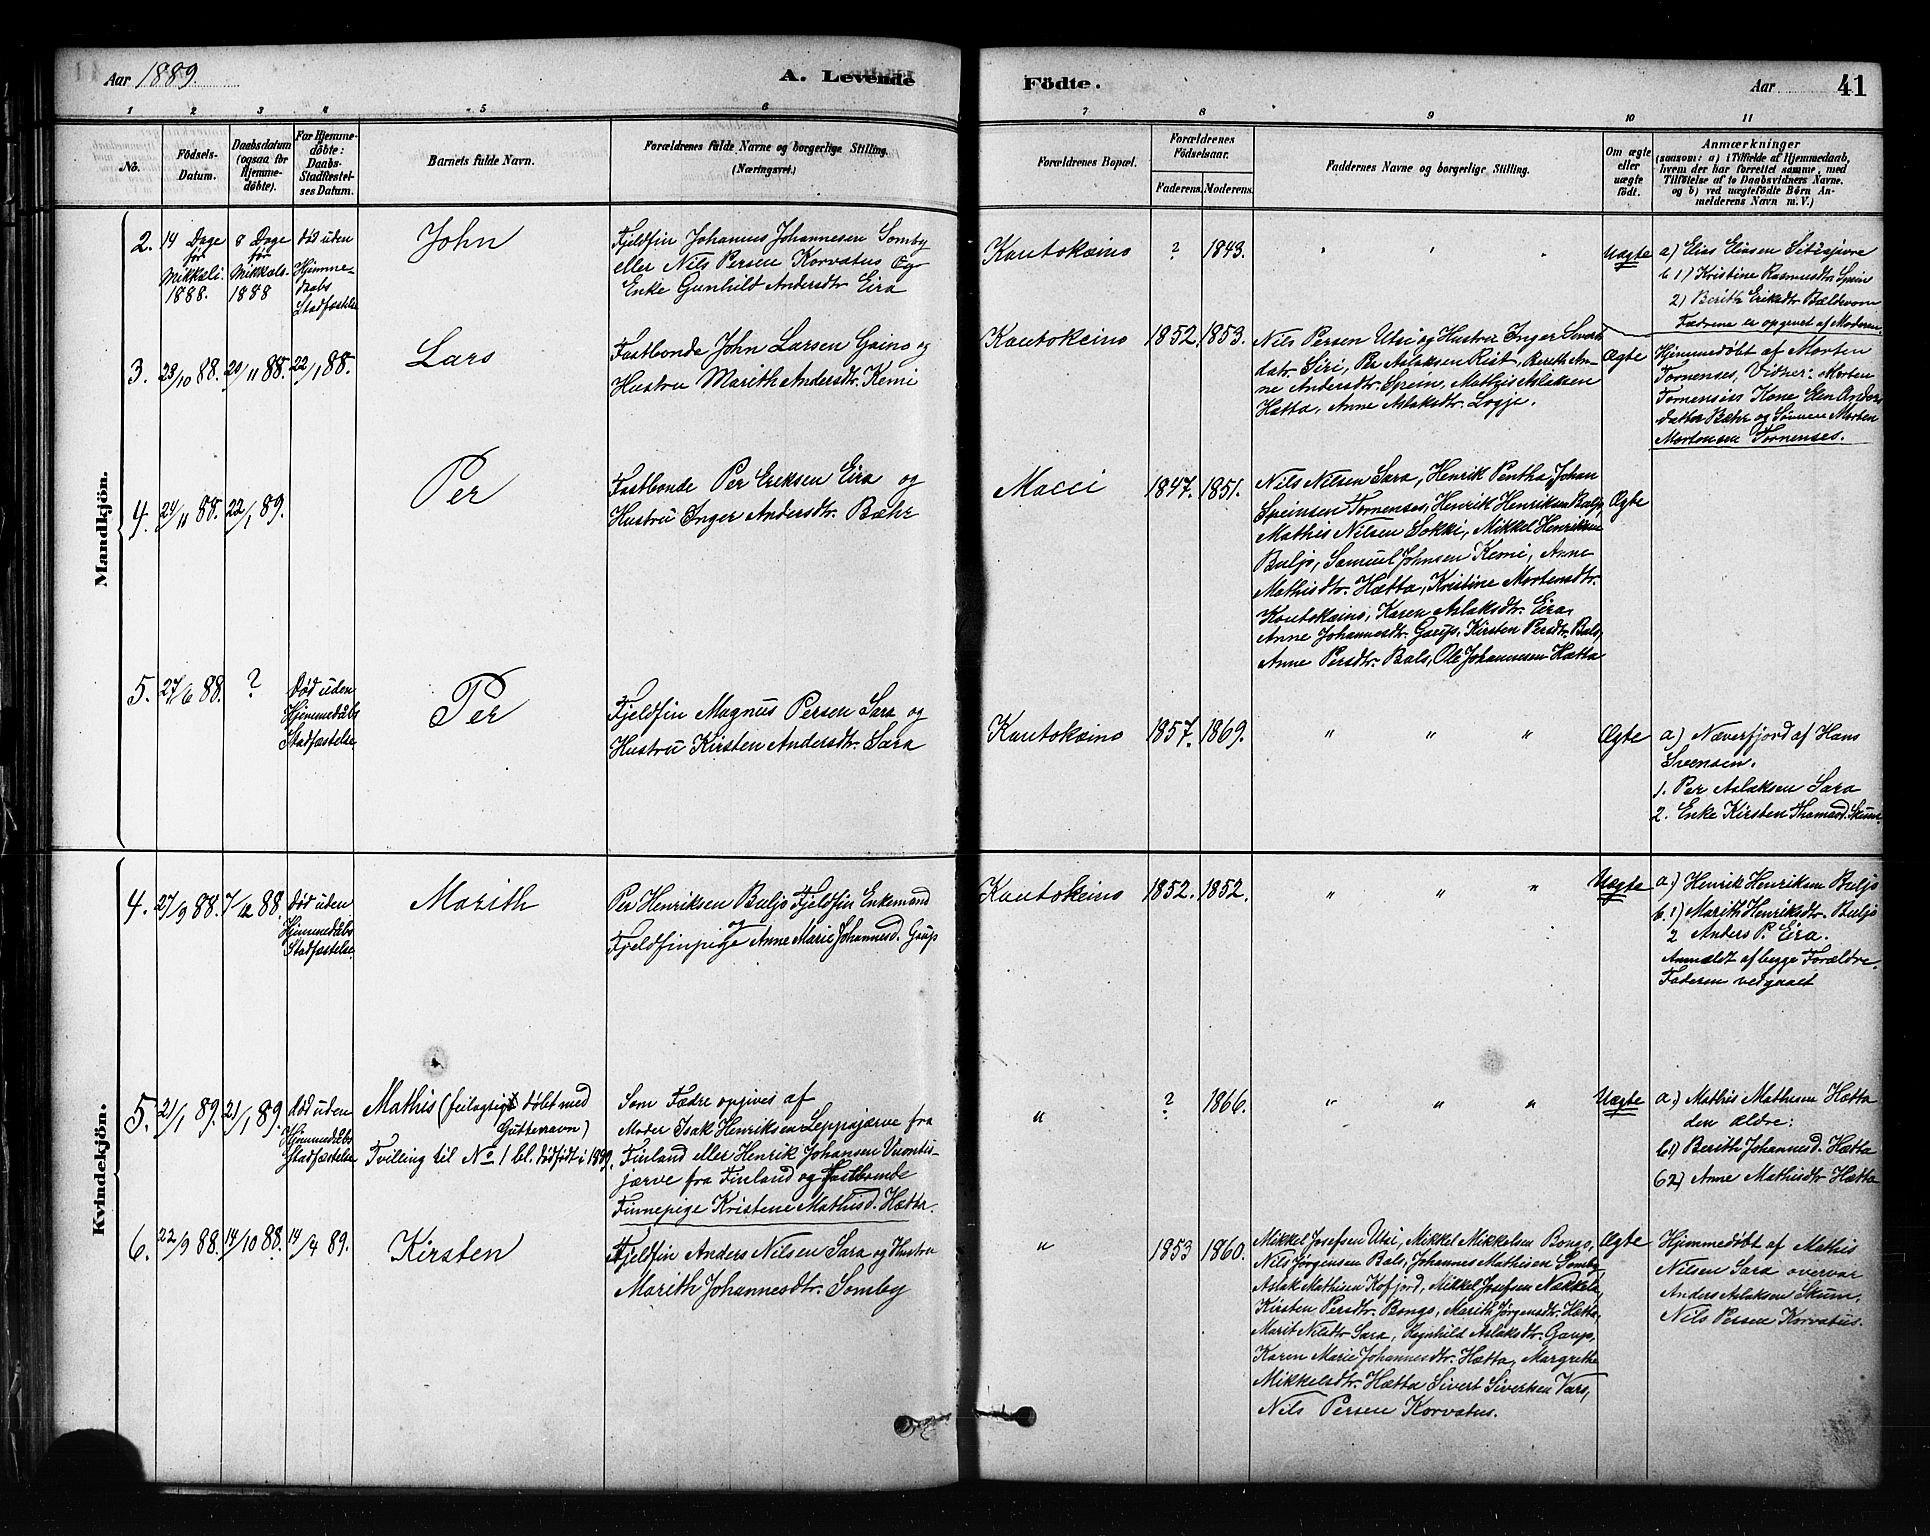 Aar 1889.
A. Levende
Födte.
Aar
41
1
2
3
4
5
6
7
8
9
10
11
No.
Födsels-
Datum.
Daabsdatum
(ogsaa for
Hjemme-
döbte).
For Hjemme-
döbte:
Daabs-
Stadfæstel-
ses Datum.
Barnets fulde Navn.
Forældrenes fulde Navne og borgerlige Stilling.
(Næringsvei.)
Forældrenes Bopæl.
Forældrenes
Födselsaar.
Faderens. Moderens.
Faddernes Navne og borgerlige Stilling.
Om ægte
eller
uægte
födt.
Anmærkninger
(saasom: a) i Tilfælde af Hjemmedaab,
hvem der har forrettet samme, med
Tilföielse af to Daabsvidners Navne.
og b) ved uægtefödte Börn An-
melderens Navn m. V.)
Mandkjön.
2.
14 Dage
før
Mikkeli
1888.
8 Dage
før
Mikkels-
1888
Død uden
Hjemme-
daabs
Stadfæstelse
John
Fjeldfin Johannes Johannesen Somby
eller Nils Persen Korvatus og
Enke Gunhild Andersdtr Eira
Kautokeino
?
1843.
" " "
Uægte
a) Elias Eliasen
b 1) Kristine Rasmusdtr Spein
2) Berith Eriksdtr
Fædrene er opgivet af Moderen.
3.
23/10 88.
20/11 88.
22/1 88.
Lars
Fastbonde John Larsen Gaino og
Hustru Marith Andersdtr. Kemi
Kautokeino
1852.
1853.
Nils Persen Utsi og Hustru Inger
datr. Siri, Per Aslaksen Rist, Bereth An-
ne Andersdtr. Spein, Mathis Aslaksen
Hætta, Anne Aslaksdtr. Logje.
Ægte
Hjemmedøbt af Morten
Tornenses, Vidner: Morten
Tornensis Kone Elen Anders
datter Bæhr og Sønnen Morten
Mortensen Tornenses.
4.
24/11 88.
22/1 89.
Per
Fastbonde Per Eriksen Eira og
Hustru Inger Andersdtr. Bæhr
Macci
1847.
1851.
Nils Nilsen Sara, Henrik Pentha, Johan
Speinsen Tornenses, Henrik Henriksen Buljo,
Mathis Nilsen Sokki, Mikkel Henriksen
Buljo, Samuel Johnsen Kemi, Anne
Mathisdtr. Hætta, Kristine Mortensdtr.
Koutokeino, Karen Aslaksdtr. Eira,
Anne Johannesdtr. Gaup, Kirsten Persdtr. Bals,
Anne Persdtr. Bals, Ole Johannesen Hætta
Ægte
5.
27/6 88.
?
Død uden
Hjemmedaabs
Stadfæstelse
Per
Fjeldfin Magnus Persen Sara og
Hustru Kirsten Andersdtr. Sara
Kautokeino
1857.
1869.
" " "
Ægte
a) Næverfjord af Hans
Svensen.
1. Per Aslaksen Sara
2. Enke Kirsten Thomasd. Skum.
Kvindekjön.
4.
27/9 88.
7/12 88.
Død uden
Hjemmedaabs
Stadfæstelse
Marith
Per Henriksen Buljo Fjeldfin Enkemand
og
Fjeldfinpige Anne Marie Johannesd. Gaup
Kautokeino
1852.
1852.
" " "
Uægte
a.) Henrik Henriksen Buljo
b. 1) Marith Henriksdtr. Buljo
2 Anders P. Eira.
Anmeldt af begge Forældre.
Faderen vedgaaet
5.
21/1 89.
21/1 89.
Død uden
Hjemmedaabs
Stadfæstelse
Mathis (feilagtigt døbt med
Guttenavn)
Tvilling til No 1 bl. dødfødt i 1889.
Som Fædre opgives af
Moder Isak Henriksen Leppajærve fra
Finland eller Henrik Johansen Vuontis-
jærve fra Finland og Fastboende
Finnepige Kristene Mathisd. Hætta.
"
?
1866.
" " "
Uægte
a.) Mathis Mathisen Hætta
den ældre:
b1) Berith Johannesd. Hætta
b2) Anne Mathisdtr Hætta
6.
22/9 88.
14/10 88.
14/4 89.
Kirsten
Fjeldfin Anders Nilsen Sara og Hustru
Marith Johannesdtr. Somby
"
1853
1860.
Mikkel Josefsen Utsi, Mikkel Mikkelsen Bongo,
Nils Jørgensen Bals, Johannes Mathisen Somby
Aslak Mathisen Kofjord, Mikkel Josefsen Nækkela,
Kirsten Persdtr. Bongo, Marith Jørgensdtr. Hætta,
Marit Nilsdtr Sara, Regnhild Aslaksdtr. Gaup,
Karen Marie Johannesdtr. Hætta, Margrethe
Mikkelsdtr. Hætta Sivert Sivertsen Vars,
Nils Persen Korvatus.
Ægte
Hjemmedøbt af Mathis
Nilsen Sara overvar
Anders Aslaksen Skum,
Nils Persen Korvatus.